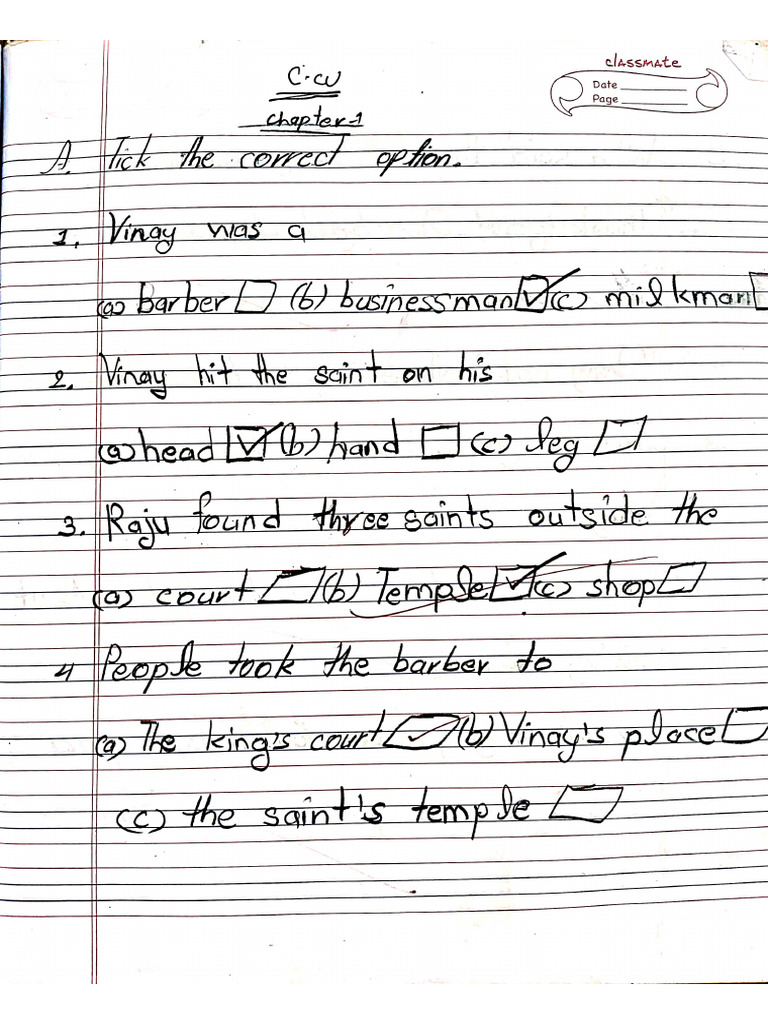 classmate
Date
Page
C.cw
Chapter-1
A. Tick the correct option.
1. Vinay was a
(a) barber ☐ (b) businessman ☑ (c) milkman ☐
2. Vinay hit the saint on his
(a) head ☑ (b) hand ☐ (c) leg ☐
3. Raju found three saints outside the
(a) court ☐ (b) Temple ☑ (c) shop ☐
4 People took the barber to
(a) The king's court ☑ (b) Vinay's place ☐
(c) the saint's temple ☐